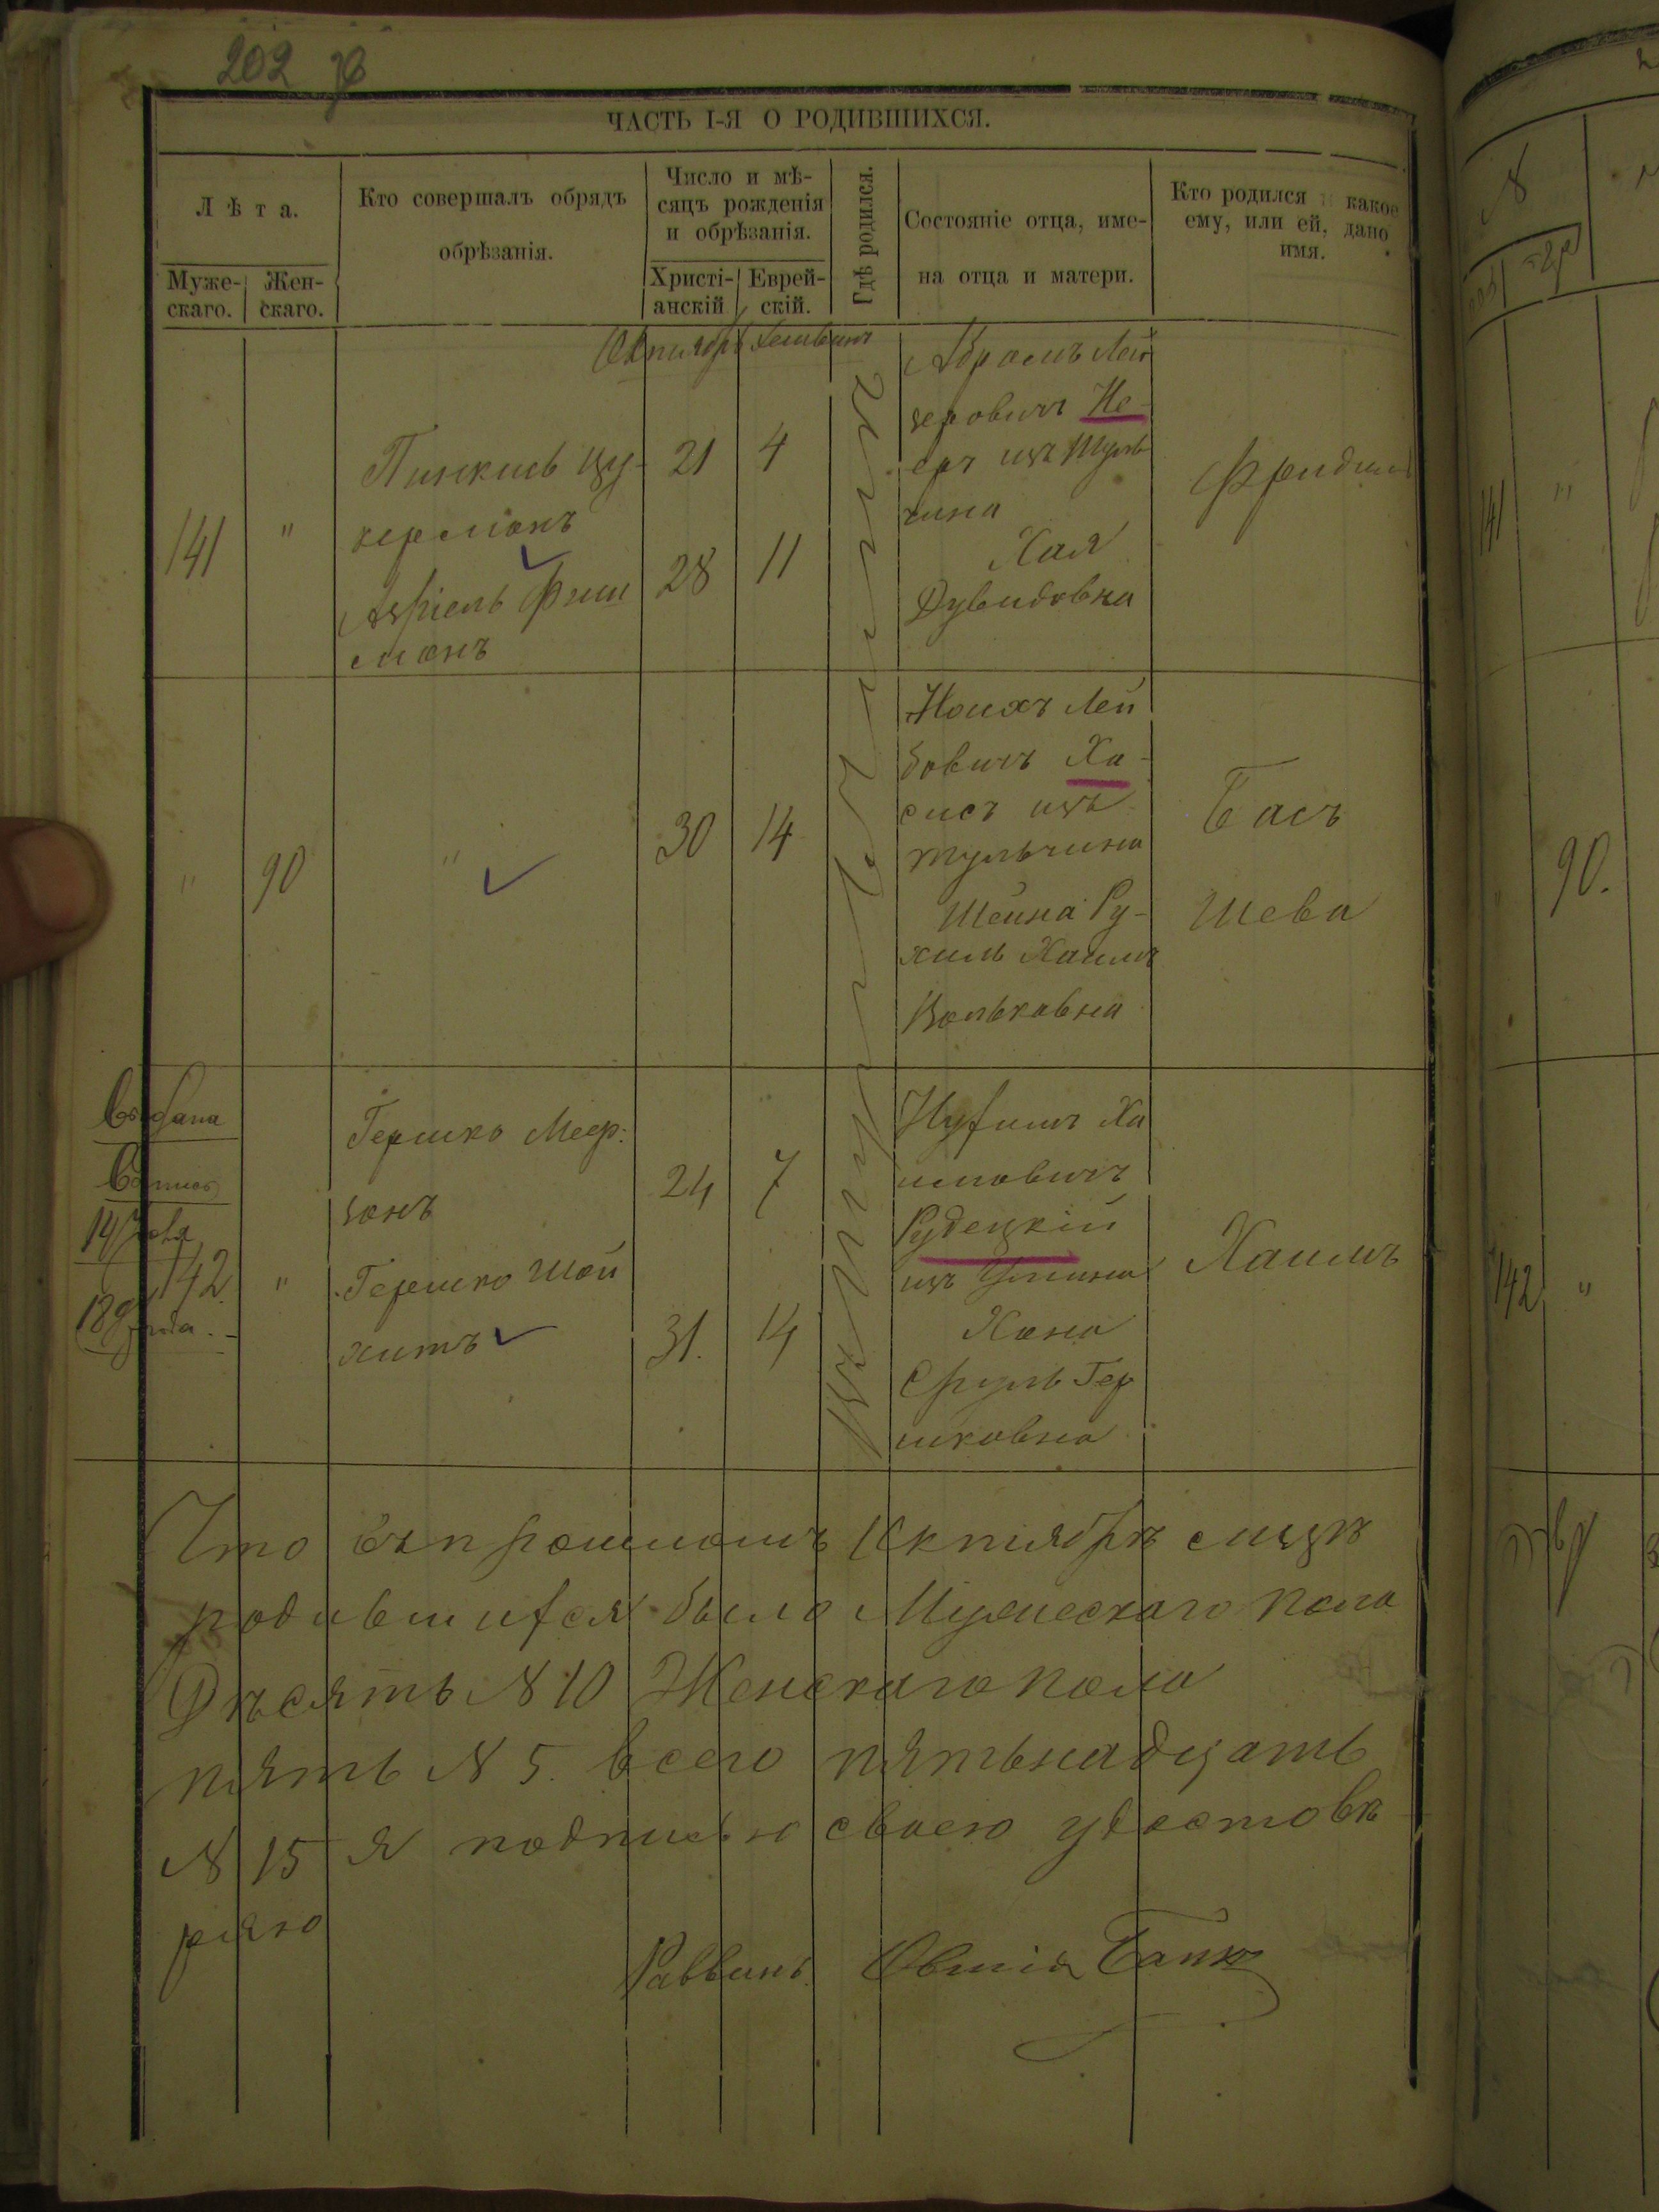 202
ЧАСТЬ I-Я О РОДИВШИХСЯ.
Лѣта.
Муже-
скаго.
Жен-
скаго.
Кто совершалъ обрядъ
обрѣзанія.
Число и мѣ-
сяцъ рожденія
и обрѣзанія.
Христі-
анскій
Еврей-
скій.
Гдѣ родился.
Состояніе отца, име-
на отца и матери.
Кто родился и какое
ему, или ей, дано
имя.
Октябрь Хешванъ
141
"
Пинкись Цу-
керманъ
Азріель Фиш
манъ
21 4
28 11
Абрамъ Лей
зеровичъ Не-
еръ изъ Туль
чина
Хая
Дувидовна
"
90
"
30 14
Лей
бовичъ Ха-
сисъ изъ
Тульчина
Шейна Ру-
хиль Хаимъ
Вольковна
Бась
Шева
142
"
Гершко Меер-
зонъ
Гершко Шой
хитъ
24 7
31. 14
Нухимъ Ха
имовичъ
Рудецкій
изъ Умани
Хана
Сруль Гер
шковна
Хаимъ
Что въ прошломъ Октябрѣ мцѣ
родившихся было Мужескаго пола
Дѣсять № 10 Женскаго пола
пять № 5. всего пятьнадцать
№ 15 я подписью своею удостовѣ-
ряю
Раввинъ